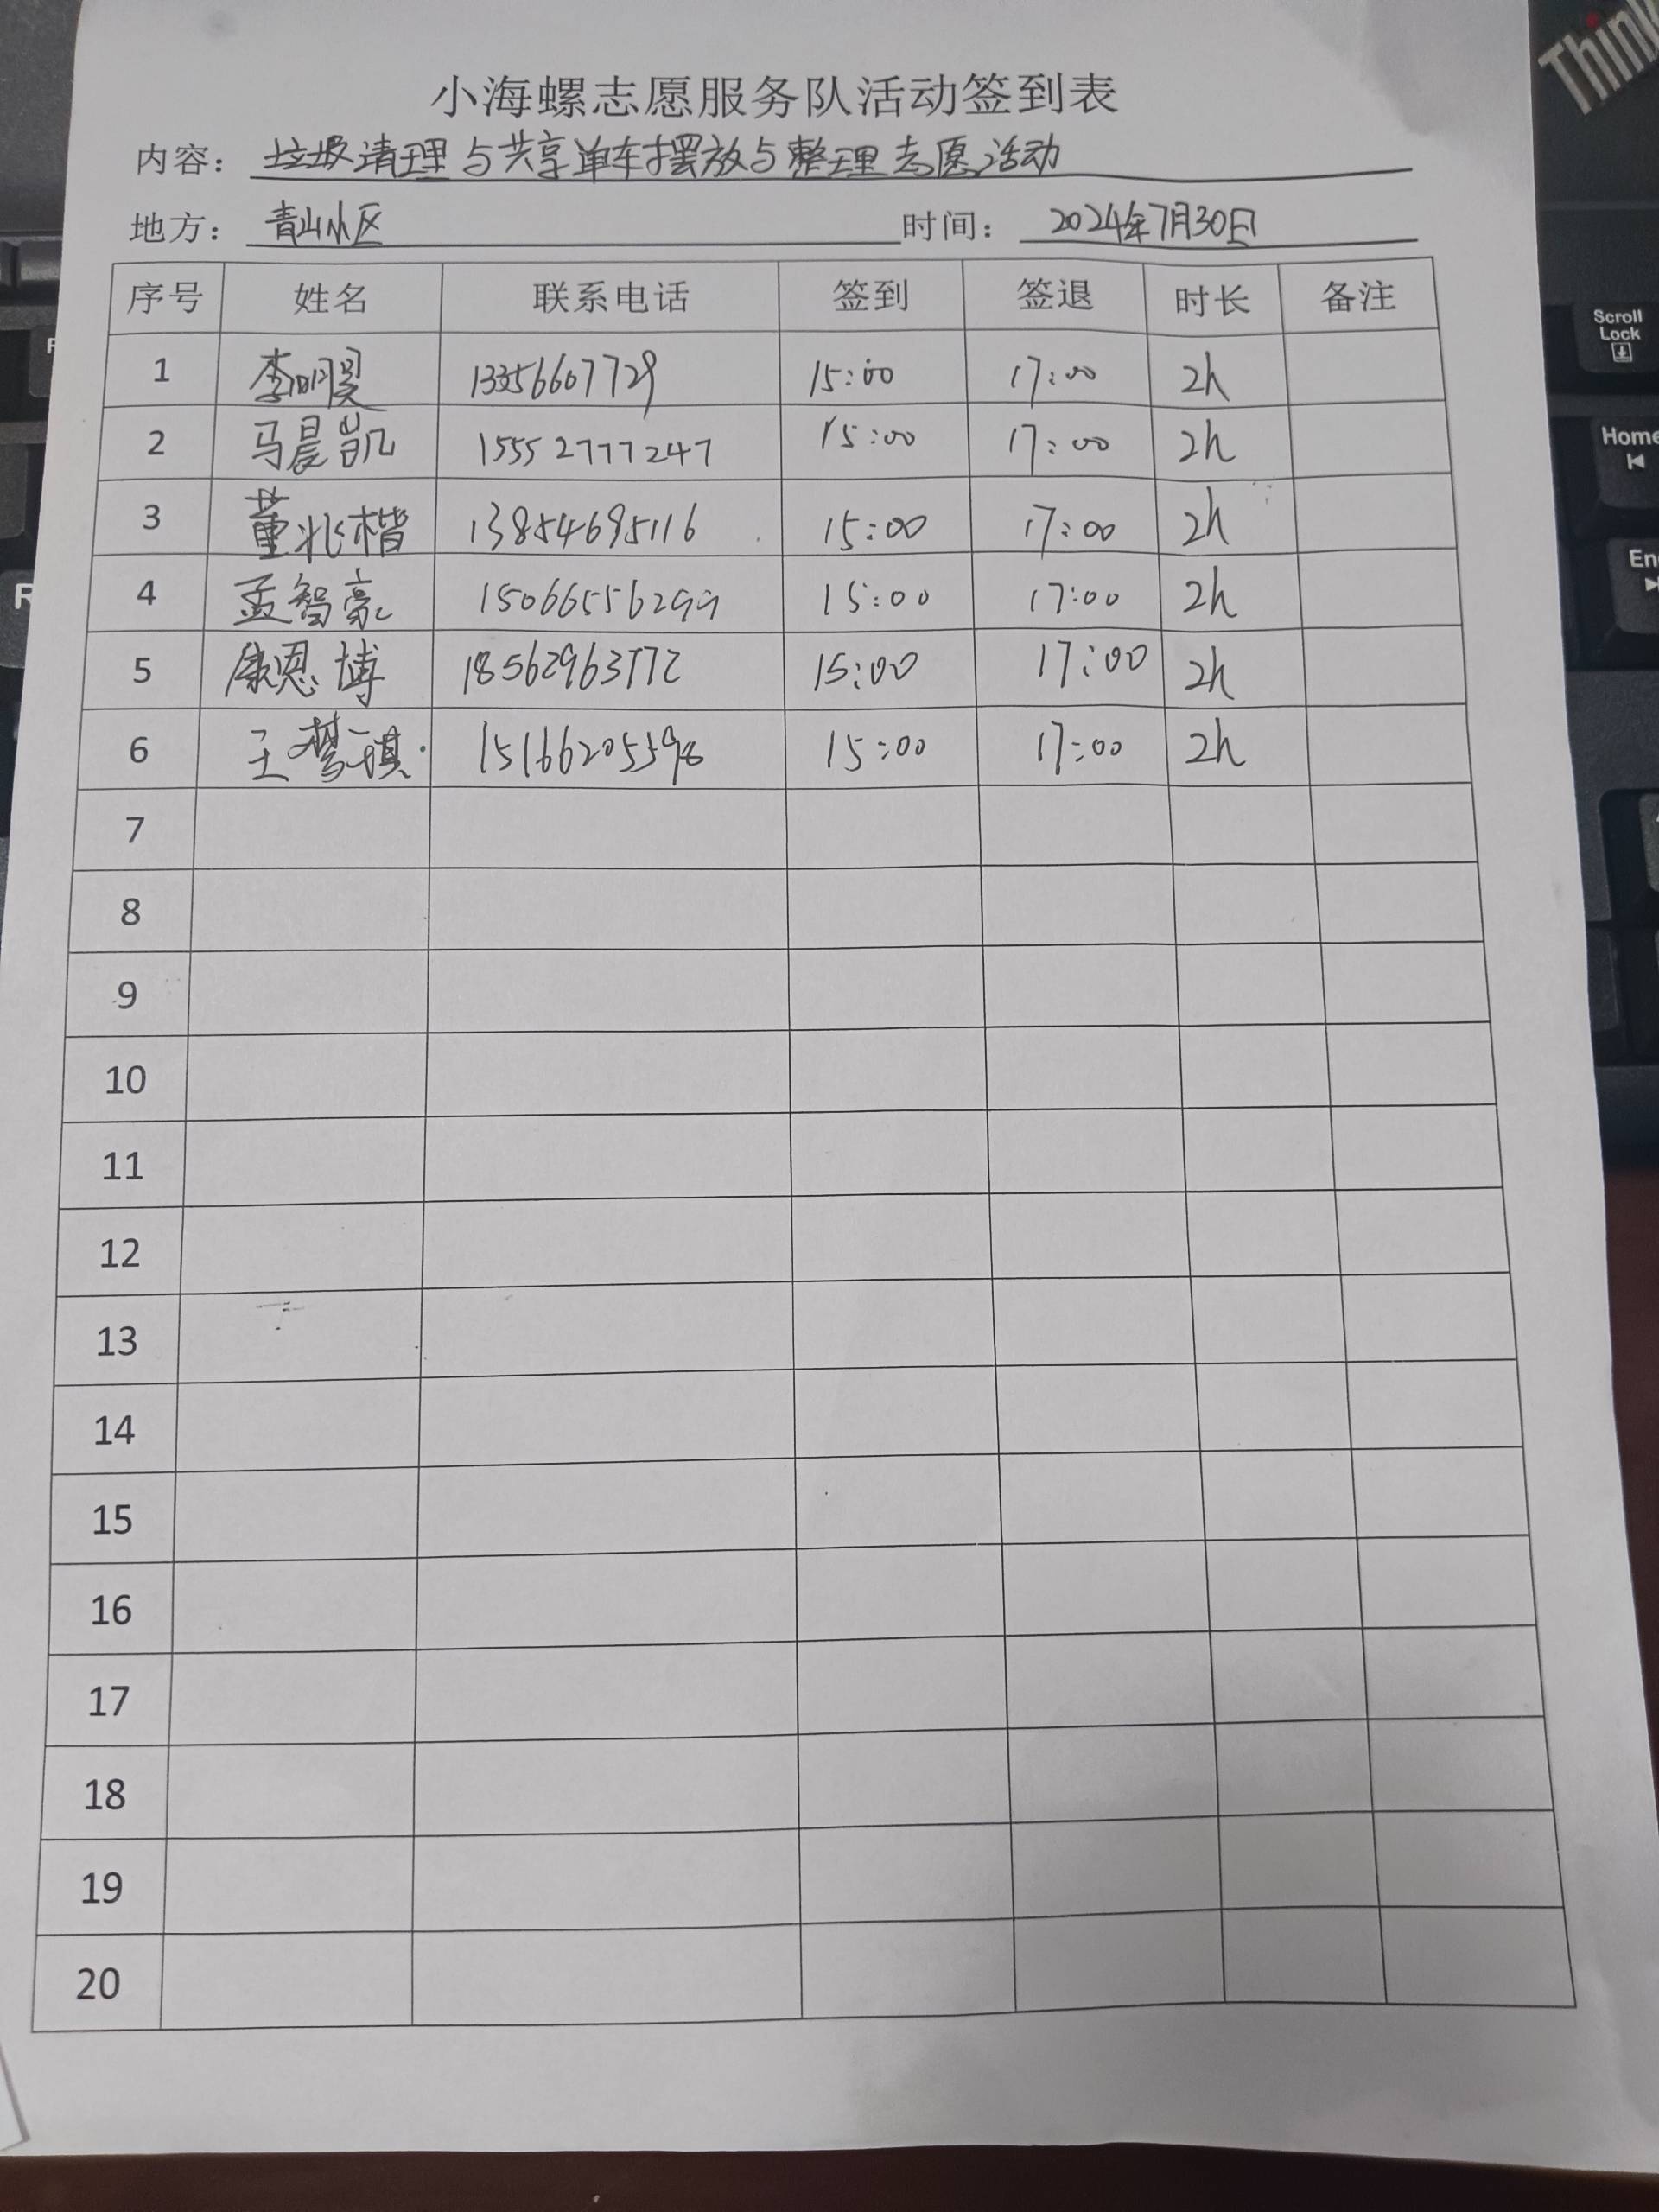 Think
小海螺志愿服务队活动签到表
内容: 垃圾清理与共享单车摆放与整理志愿活动
地方: 青山小区 时间: 2024年7月30日
序号 姓名 联系电话 签到 签退 时长 备注
1 李明昊 13356607729 15:00 17:00 2h
2 马晨凯 15552777247 15:00 17:00 2h
3 董兆楷 13854695116 15:00 17:00 2h
4 孟智豪 15066556299 15:00 17:00 2h
5 康恩博 18562963772 15:00 17:00 2h
6 王梦琪 15166205598 15:00 17:00 2h
7
8
9
10
11
12
13
14
15
16
17
18
19
20
Scroll
Lock
Home
En